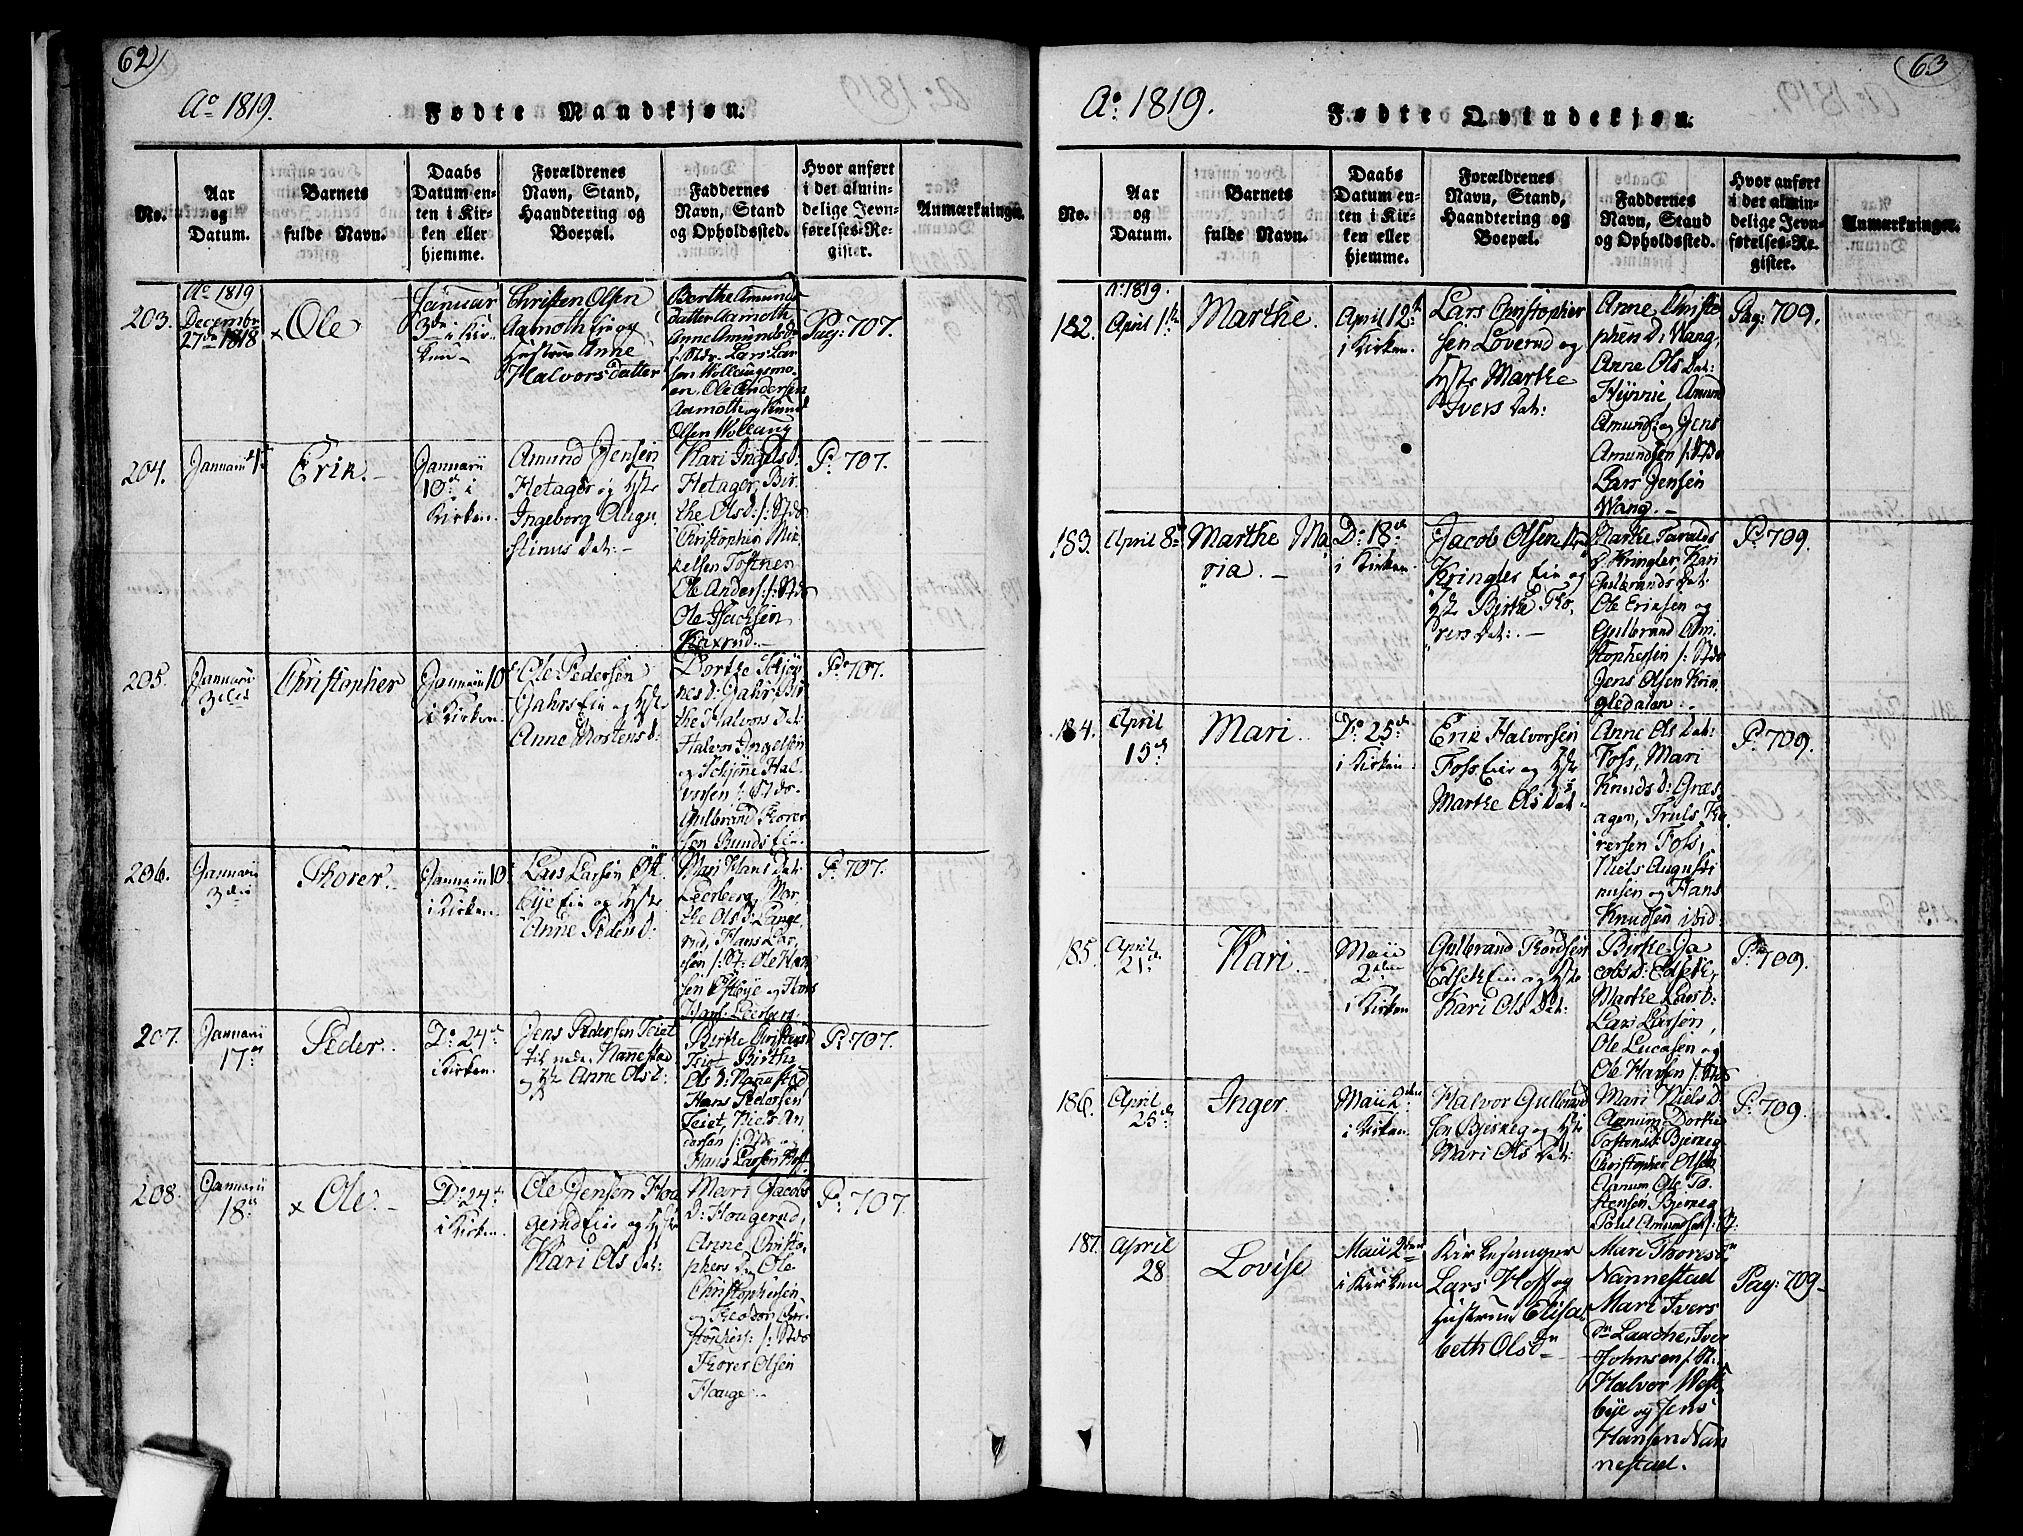 62
Ao 1819.
Fødte Mandkjøn.
No.
Aar
og
Datum.
Barnets
fulde Navn.
Daabs
Datum en-
ten i Kir-
ken eller
hjemme.
Forældrenes
Navn, Stand,
Haandtering og
Boepæl.
Faddernes
Navn, Stand
og Opholdssted.
Hvor anført
i det almin-
delige Jevn-
førelses-Re-
gister.
Anmærkninger.
203.
Ao 1819
Decembr
27de 1818
× Ole
Januar
3die i Kir-
ken
Christen Olsen
Aamoth Eje og
Hustrue Anne
Halvors datter
Berthe Amunds
datter Aamoth
Anne Amundsdr
Lars Lar
sen Wollaugsmo-
en, Ole Andersen
Aamoth og Knud
Olsen Wollaug
Pag: 707.
204.
Januarii 4
Erik.
Januarii
10de i
Kirken.
Amund Jensen
Hetager og Hste
Ingeborg Augu
stinus Dat:
Kari Ingels d:
Hetager, Bir
the Ols d: /: Stds
Christopher Mik
kelsen Tostnen
Ole Anders: /: Stds
Ole Isachsen
Kaxrud.
P: 707.
205.
Januarii
3die
Christopher
Januarii 10
i Kirken.
Ole Pedersen
Jahr Eie og Hste
Anne Mortens d:
Dorthe Schjøn
nes d: Jahr Bir
the Halvors Dat:
Halvor Ingelsen
og Schjønne Hal
vorsen /: Stds
Gulbrand Thorer
sen Bunds Eie
P: 707.
206.
Januarii
3die
Thorer.
Januarii 10
i Kirken.
Lars Larsen Øst
bye Eie og Hste
Anne Peders d:
Mari Hans Dat:
Leerberg, Mar
the Ols d: Lange
rud, Hans Lar
sen /: St: Ole Han
sen Østbye og Hans
Hans: Leerberg
P: 707.
207.
Januarii
17
Peder.
Do 24de
i Kirken.
Jens Pedersen Teiet
til nedr. Nannestad
og Hste Anne Ols d:
Birthe Christens
Teiet, Birthe
Ols d: Nannestad
Hans Pedersen
Teiet, Niels An
dersen /: Stds og
Hans Larsen Hoff
P: 707.
208.
Januarii
18
× Ole.
Do 24de
i Kirken.
Ole Jensen Hou
gerud Eie og Hste
Kari Ols Dat:
Mari Jacobs
d: Hougerud,
Anne Christo
phers d, Ole
Christophersen
og Theodor Chr
stophers: /: Stds
Thorer Olsen
Houge.
P: 707.
63
Ao: 1819.
Fødte Qvindekjøn.
No.
Aar
og
Datum.
Barnets
fulde Navn.
Daabs
Datum en-
ten i Kir-
ken eller
hjemme.
Forældrenes
Navn, Stand,
Haandtering og
Boepæl.
Faddernes
Navn, Stand
og Opholdssted.
Hvor anført
i det almin-
delige Jevn-
førelses-Re-
gister.
Anmærkninger.
182.
Ao: 1819.
April 1ste
Marthe.
April 12te
i Kirken.
Lars Christopher
sen Løverud og
Hste Marthe
Ivers Dat:
Anne Christo
phen D: Wang,
Anne Ols Dat:
Hynnie, Amund
Amunds: og Jens
Amundsen /: Stds
Lars Jensen
Wang.
Pag: 709.
183.
April 8de
Marthe Ma
ria.
D: 18de
i Kirken.
Jacob Olsen
Kringler Eie og
Hste Birthe Tho
rers Dat:
Marthe Taralds
d Kringler, Kari
Gulbrands Dat:
Ole Eriksen og
Gulbrand Chri
stophersen /: Stds
Jens Olsen Krin
gledalen.
P: 709.
184.
April
15de
Mari.
Do 25de
i Kirken.
Erik Halvorsen
Foss Eie og Hste
Marthe Ols Dat:
Anne Ols Dat:
Foss, Mari
Knuds d: Græs
agen, Truls Tho
rersen Foss,
Niels Augusti
nusen og Hans
Knudsen ibid
P: 709.
185.
April
21de
Kari
Maii
2den
i Kirken
Gulbrand Thordsen
Edseth Eie og Hste
Kari Ols Dat:
Birthe Ja
cobs d: Edseth,
Marthe Lars d:
Lars Larsen,
Ole Lucasen og
Ole Hansen /: Stds
P: 709.
186.
April
25de
Inger.
Maii 2den
i Kirken.
Halvor Gulbrand
sen Bjerkeg og Hste
Mari Ols Dat:
Mari Niels D
Aanum, Dorthe
Tostens d: Bjerkeg
Christopher Olsen
Aanum Ole To
stensen Bjerkeg
Poul Amundsen /: St.
P: 709.
187.
April
28
Lovise
Maii 2den
i Kirken
Kirkesanger
Lars Hoff og
Hustrue Elisa
beth Olsdn
Mari Thoresdn
Nannestad
Mari Ivers
dn Laache, Iver
Johnsen /: St.
Halvor West
bye og Jens
Hansen Nan
nestad.
Pag: 709